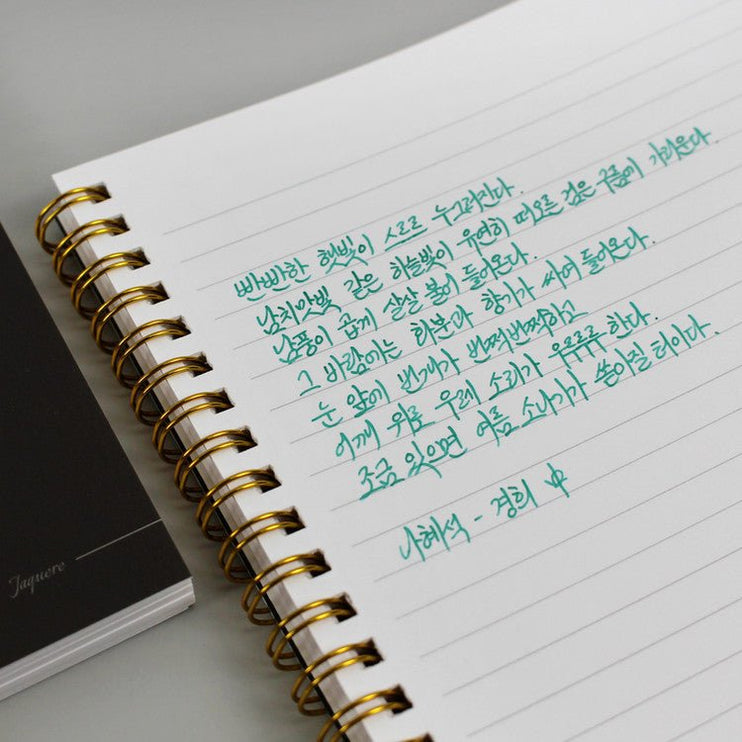 빤빤한 햇빛이 스르르 누그러진다.
남치맛빛 같은 하늘빛이 유연히 떠오른 검은 구름에 가리운다.
남풍이 곱게 살살 불어 들어온다.
그 바람에는 화분과 향기가 싸여 들어온다.
눈 앞에 번개가 번쩍번쩍하고
어깨 위로 우레 소리가 우루루루 한다.
조금 있으면 여름 소나기가 쏟아질 터이다.
나혜석 - 경희 中
Jaquére